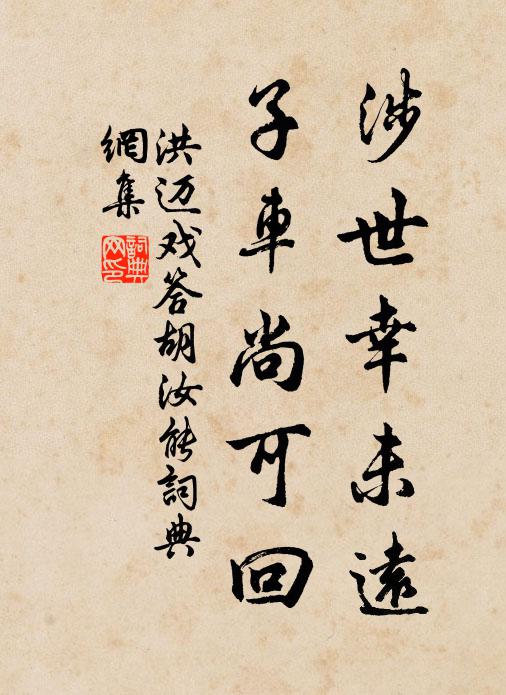 涉世幸未遠
子車尚可回
洪迈戏答胡汝能詞典
網集
詞典
网印